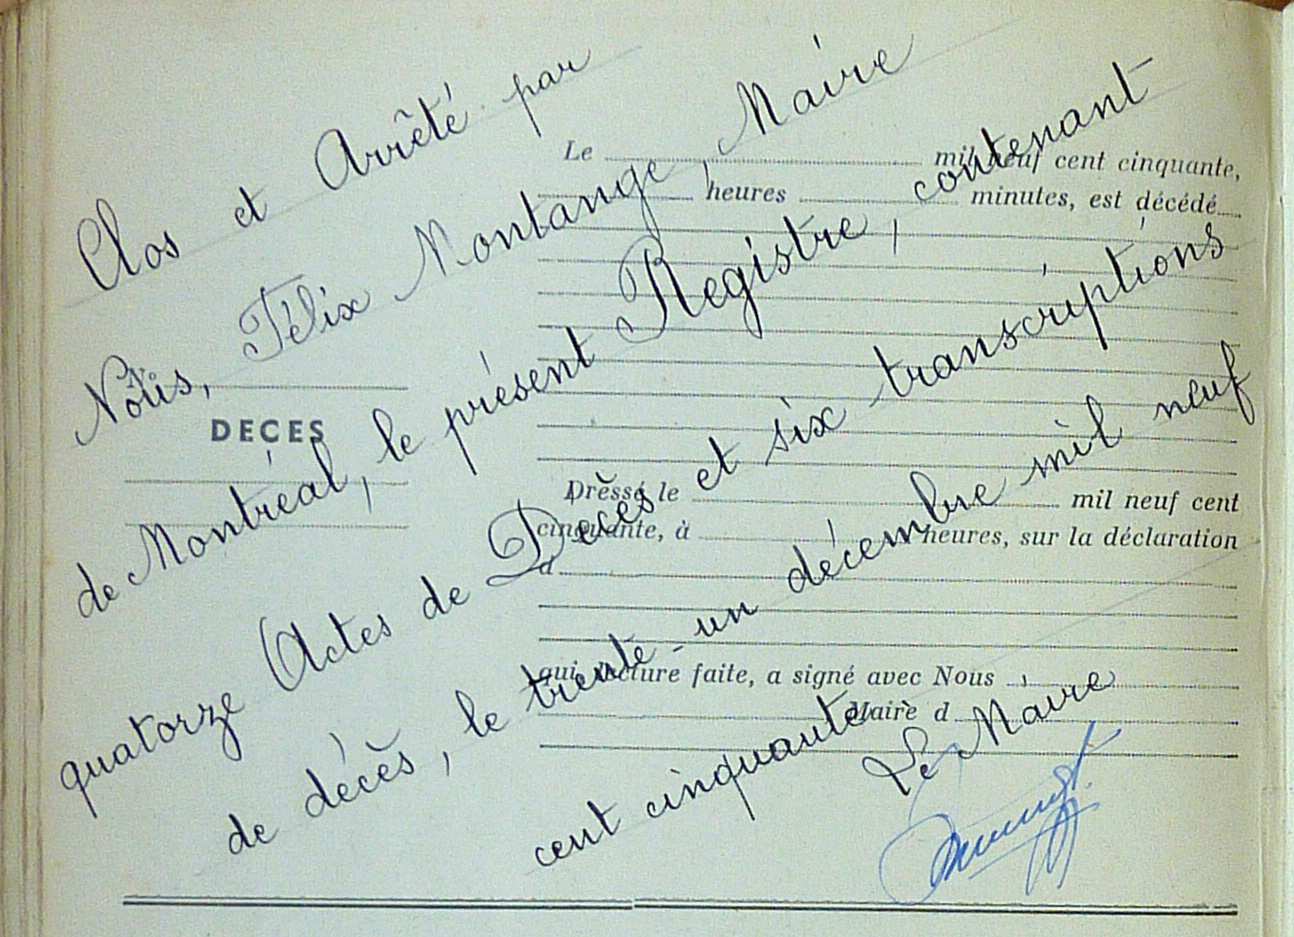 Clos et Arrêté par
Nous, Félix Montange, Maire
de Montréal, le présent Registre, contenant
quatorze Actes de Décès et six transcriptions
de décès, le trente-un décembre mil neuf
cent cinquante
Le Maire
DECES
Le mil neuf cent cinquante,
heures minutes, est décédé
Dressé le mil neuf cent
cinquante, à heures, sur la déclaration
d
qui, lecture faite, a signé avec Nous
Maire d